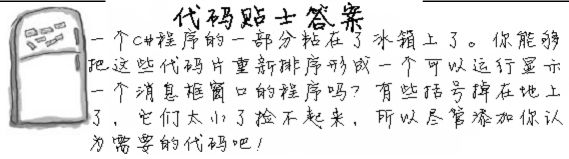 代码贴士答案
一个C#程序的一部分粘在了冰箱上了。你能够
把这些代码片重新排序形成一个可以运行显示
一个消息框窗口的程序吗?有些括号掉在地上
了,它们太小了捡不起来,所以尽管添加你认
为需要的代码吧!